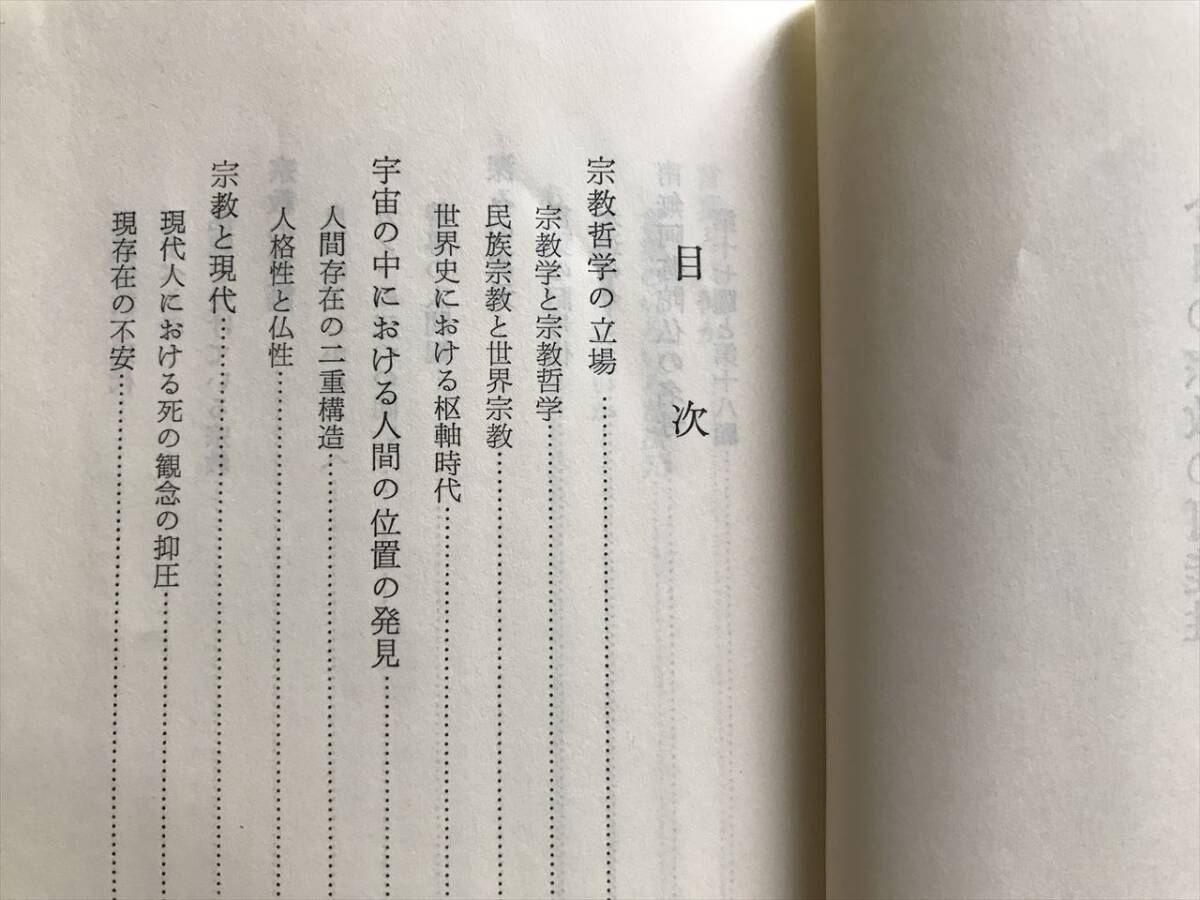 目次
宗教哲学の立場……………………
宗教学と宗教哲学……………………
民族宗教と世界宗教……………………
世界史における枢軸時代……………………
宇宙の中における人間の位置の発見……………………
人間存在の二重構造……………………
人格性と仏性……………………
宗教と現代……………………
現代人における死の観念の抑圧……………………
現存在の不安……………………